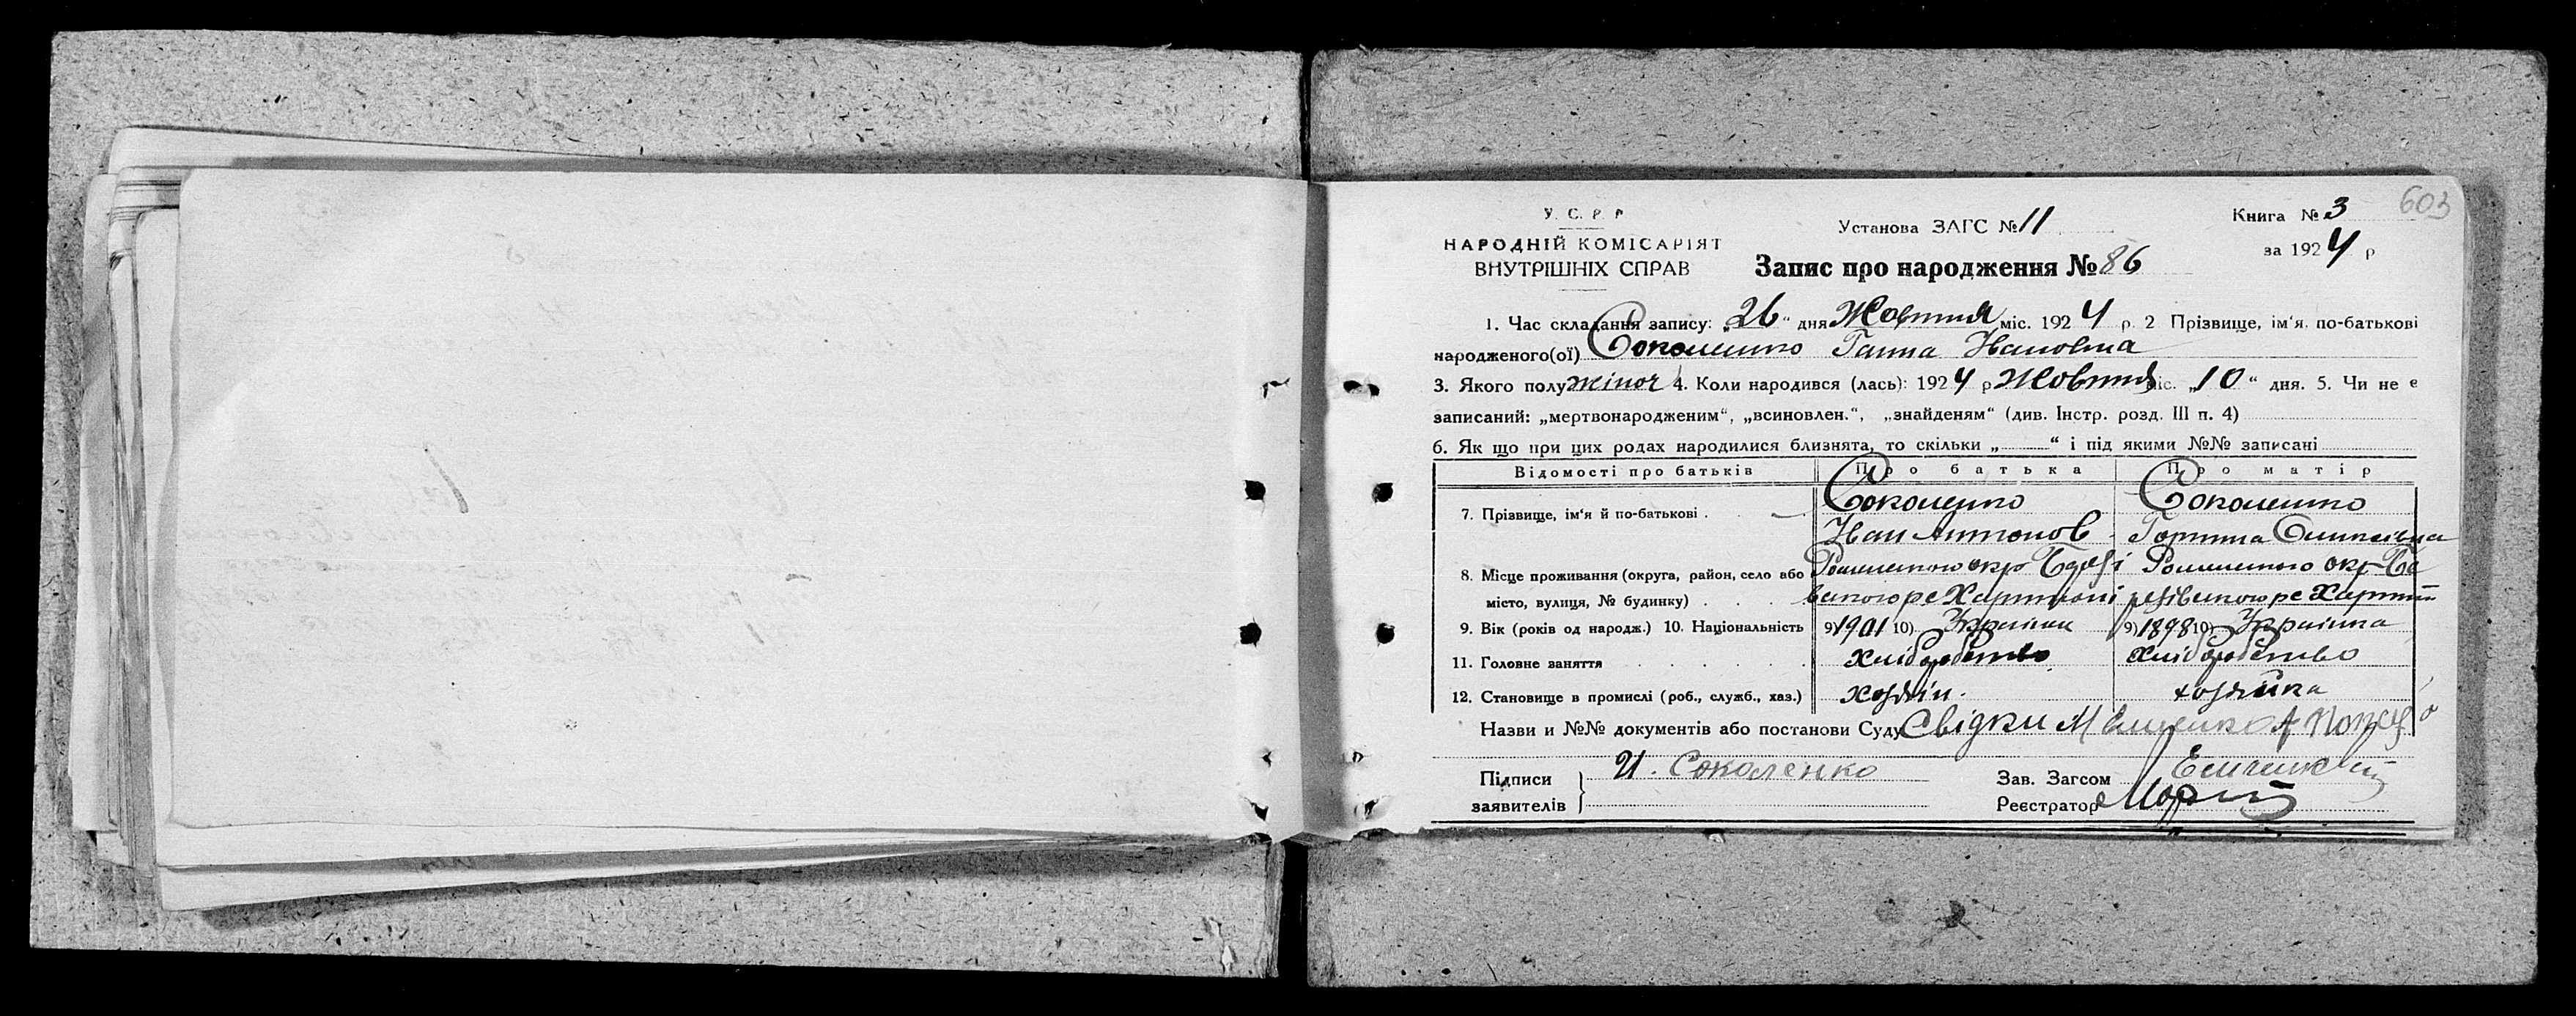 603
У. С. Р. Р.
НАРОДНІЙ КОМІСАРІЯТ
ВНУТРІШНІХ СПРАВ
Установа ЗАГС № 11
Книга № 3
за 1924 р
Запис про народження № 86
1. Час складання запису: „26“ дня Жовтня міс. 1924 р. 2 Прізвище, ім‘я, по-батькові
народженого(ої) Соколенко Ганна Ивановна
3. Якого полу жіноч 4. Коли народився (лась): 1924 р Жовтня міс. „10“ дня. 5. Чи не є
записаний: „мертвонародженим“, „всиновлен.“, „знайденям“ (див. Інстр. розд. III п. 4)
6. Як що при цих родах народилися близнята, то скільки „ “ і під якими №№ записані
Відомості про батьків Про батька Про матір
7. Прізвище, ім‘я й по-батькові . Соколенко Соколенко
Иван Антонов Горпина
8. Місце проживання (округа, район, село або Роменського окр Роменського окр
місто, вулиця, № будинку)
9. Вік (років од народж.) 10. Національність 9) 1901 10) Українец 9) 1898 10) Українка
11. Головне заняття хліборобство хліборобство
12. Становище в промислі (роб., служб., хаз.) хозяїн. хозяйка
Назви и №№ документів або постанови Суду Свідки
Підписи
заявителів
И. Соколенко
Зав. Загсом
Реєстратор